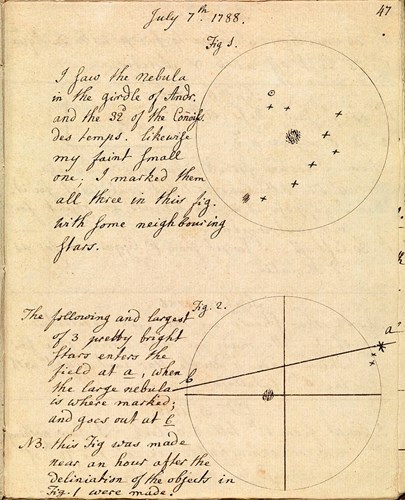 47
July 7.th 1788.
Fig 1.
I saw the nebula
in the girdle of Andr.
and the 32d of the Conoiss.
des temps. likewise
my faint small
one; I marked them
all three in this fig.
with some neighbouring
stars.
Fig. 2.
The following and largest
of 3 pretty bright
stars enters the
field at a, when
the large nebula
is where marked;
and goes out at b
NB. this Fig was made
near an hour after the
deliniation of the objects in
Fig. 1 were made.
a
b